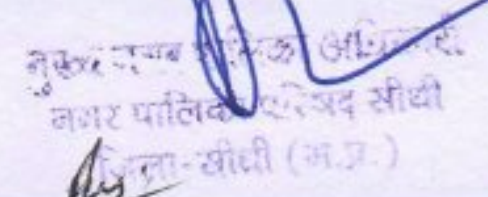 मुख्य नगर पालिका अधिकारी
नगर पालिका परिषद सीधी
जिला-सीधी (म.प्र.)